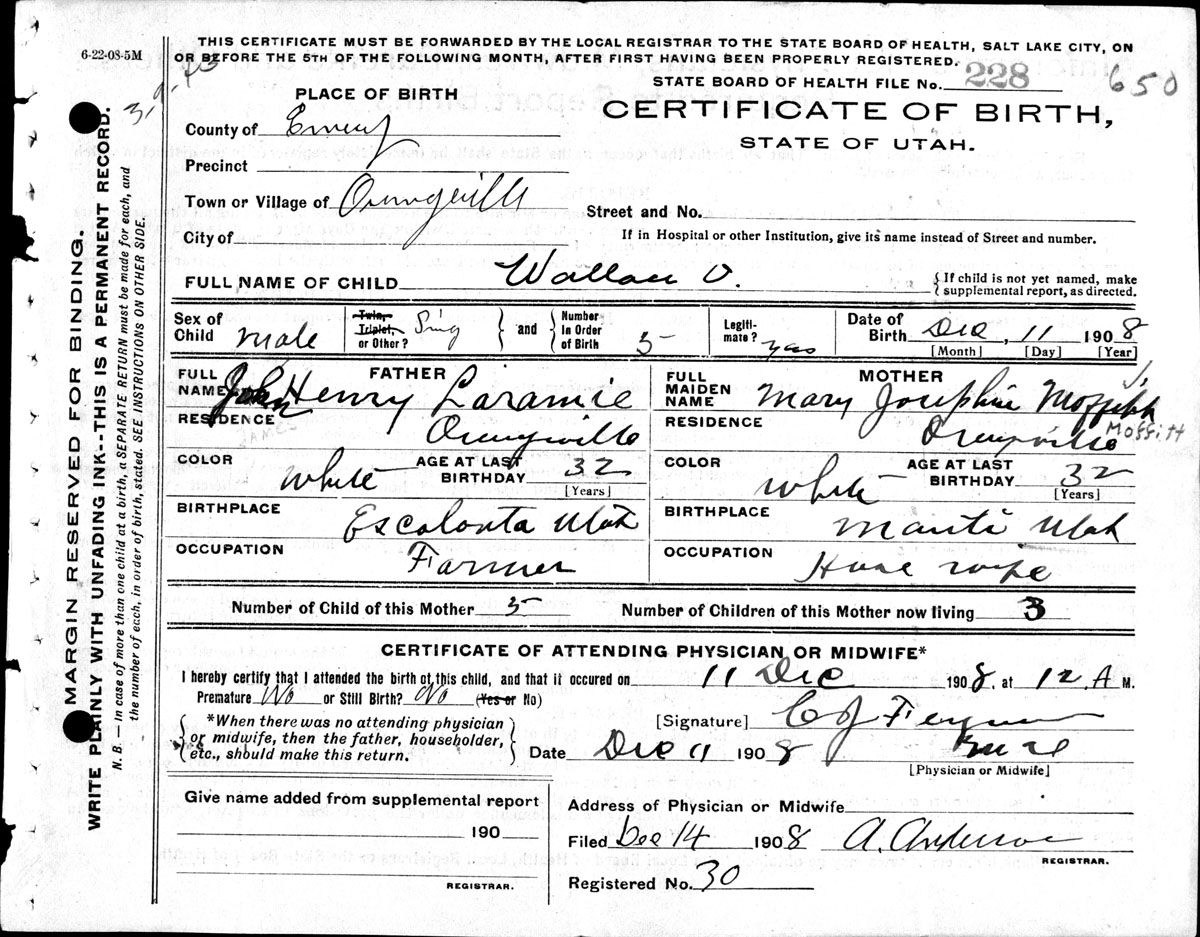 6-22-08-5M
THIS CERTIFICATE MUST BE FORWARDED BY THE LOCAL REGISTRAR TO THE STATE BOARD OF HEALTH, SALT LAKE CITY, ON
OR BEFORE THE 5TH OF THE FOLLOWING MONTH, AFTER FIRST HAVING BEEN PROPERLY REGISTERED.
STATE BOARD OF HEALTH FILE No. 228 650
CERTIFICATE OF BIRTH,
STATE OF UTAH.
PLACE OF BIRTH
County of Emery
Precinct
Town or Village of Orangeville
Street and No.
City of
If in Hospital or other Institution, give its name instead of Street and number.
FULL NAME OF CHILD Wallace O. { If child is not yet named, make supplemental report, as directed.
Sex of Child Male Twin, Triplet, or Other? Sing } and { Number In Order of Birth 5 Legitimate? yes Date of Birth Dec, 11 1908
[Month] [Day] [Year]
FATHER
FULL NAME John Henry Laramie
RESIDENCE Orangeville
JAMES
COLOR White AGE AT LAST BIRTHDAY 32
[Years]
BIRTHPLACE Escalonta Utah
OCCUPATION Farmer
MOTHER
FULL MAIDEN NAME Mary Josephine Moffitt
RESIDENCE Orangeville Moffitt
COLOR White AGE AT LAST BIRTHDAY 32
[Years]
BIRTHPLACE Manti Utah
OCCUPATION House wife
Number of Child of this Mother 5 Number of Children of this Mother now living 3
CERTIFICATE OF ATTENDING PHYSICIAN OR MIDWIFE*
I hereby certify that I attended the birth of this child, and that it occured on 11 Dec 1908, at 12, A M.
Premature No or Still Birth? No (Yes or No)
{ *When there was no attending physician or midwife, then the father, householder, etc., should make this return. }
[Signature] C J
Date Dec 11 1908
[Physician or Midwife]
Give name added from supplemental report
190
REGISTRAR.
Address of Physician or Midwife
Filed Dec 14 1908 A. Anderson
REGISTRAR.
Registered No. 30
MARGIN RESERVED FOR BINDING.
WRITE PLAINLY WITH UNFADING INK--THIS IS A PERMANENT RECORD.
N. B. — In case of more than one child at a birth, a SEPARATE RETURN must be made for each, and
the number of each, in order of birth, stated. SEE INSTRUCTIONS ON OTHER SIDE.